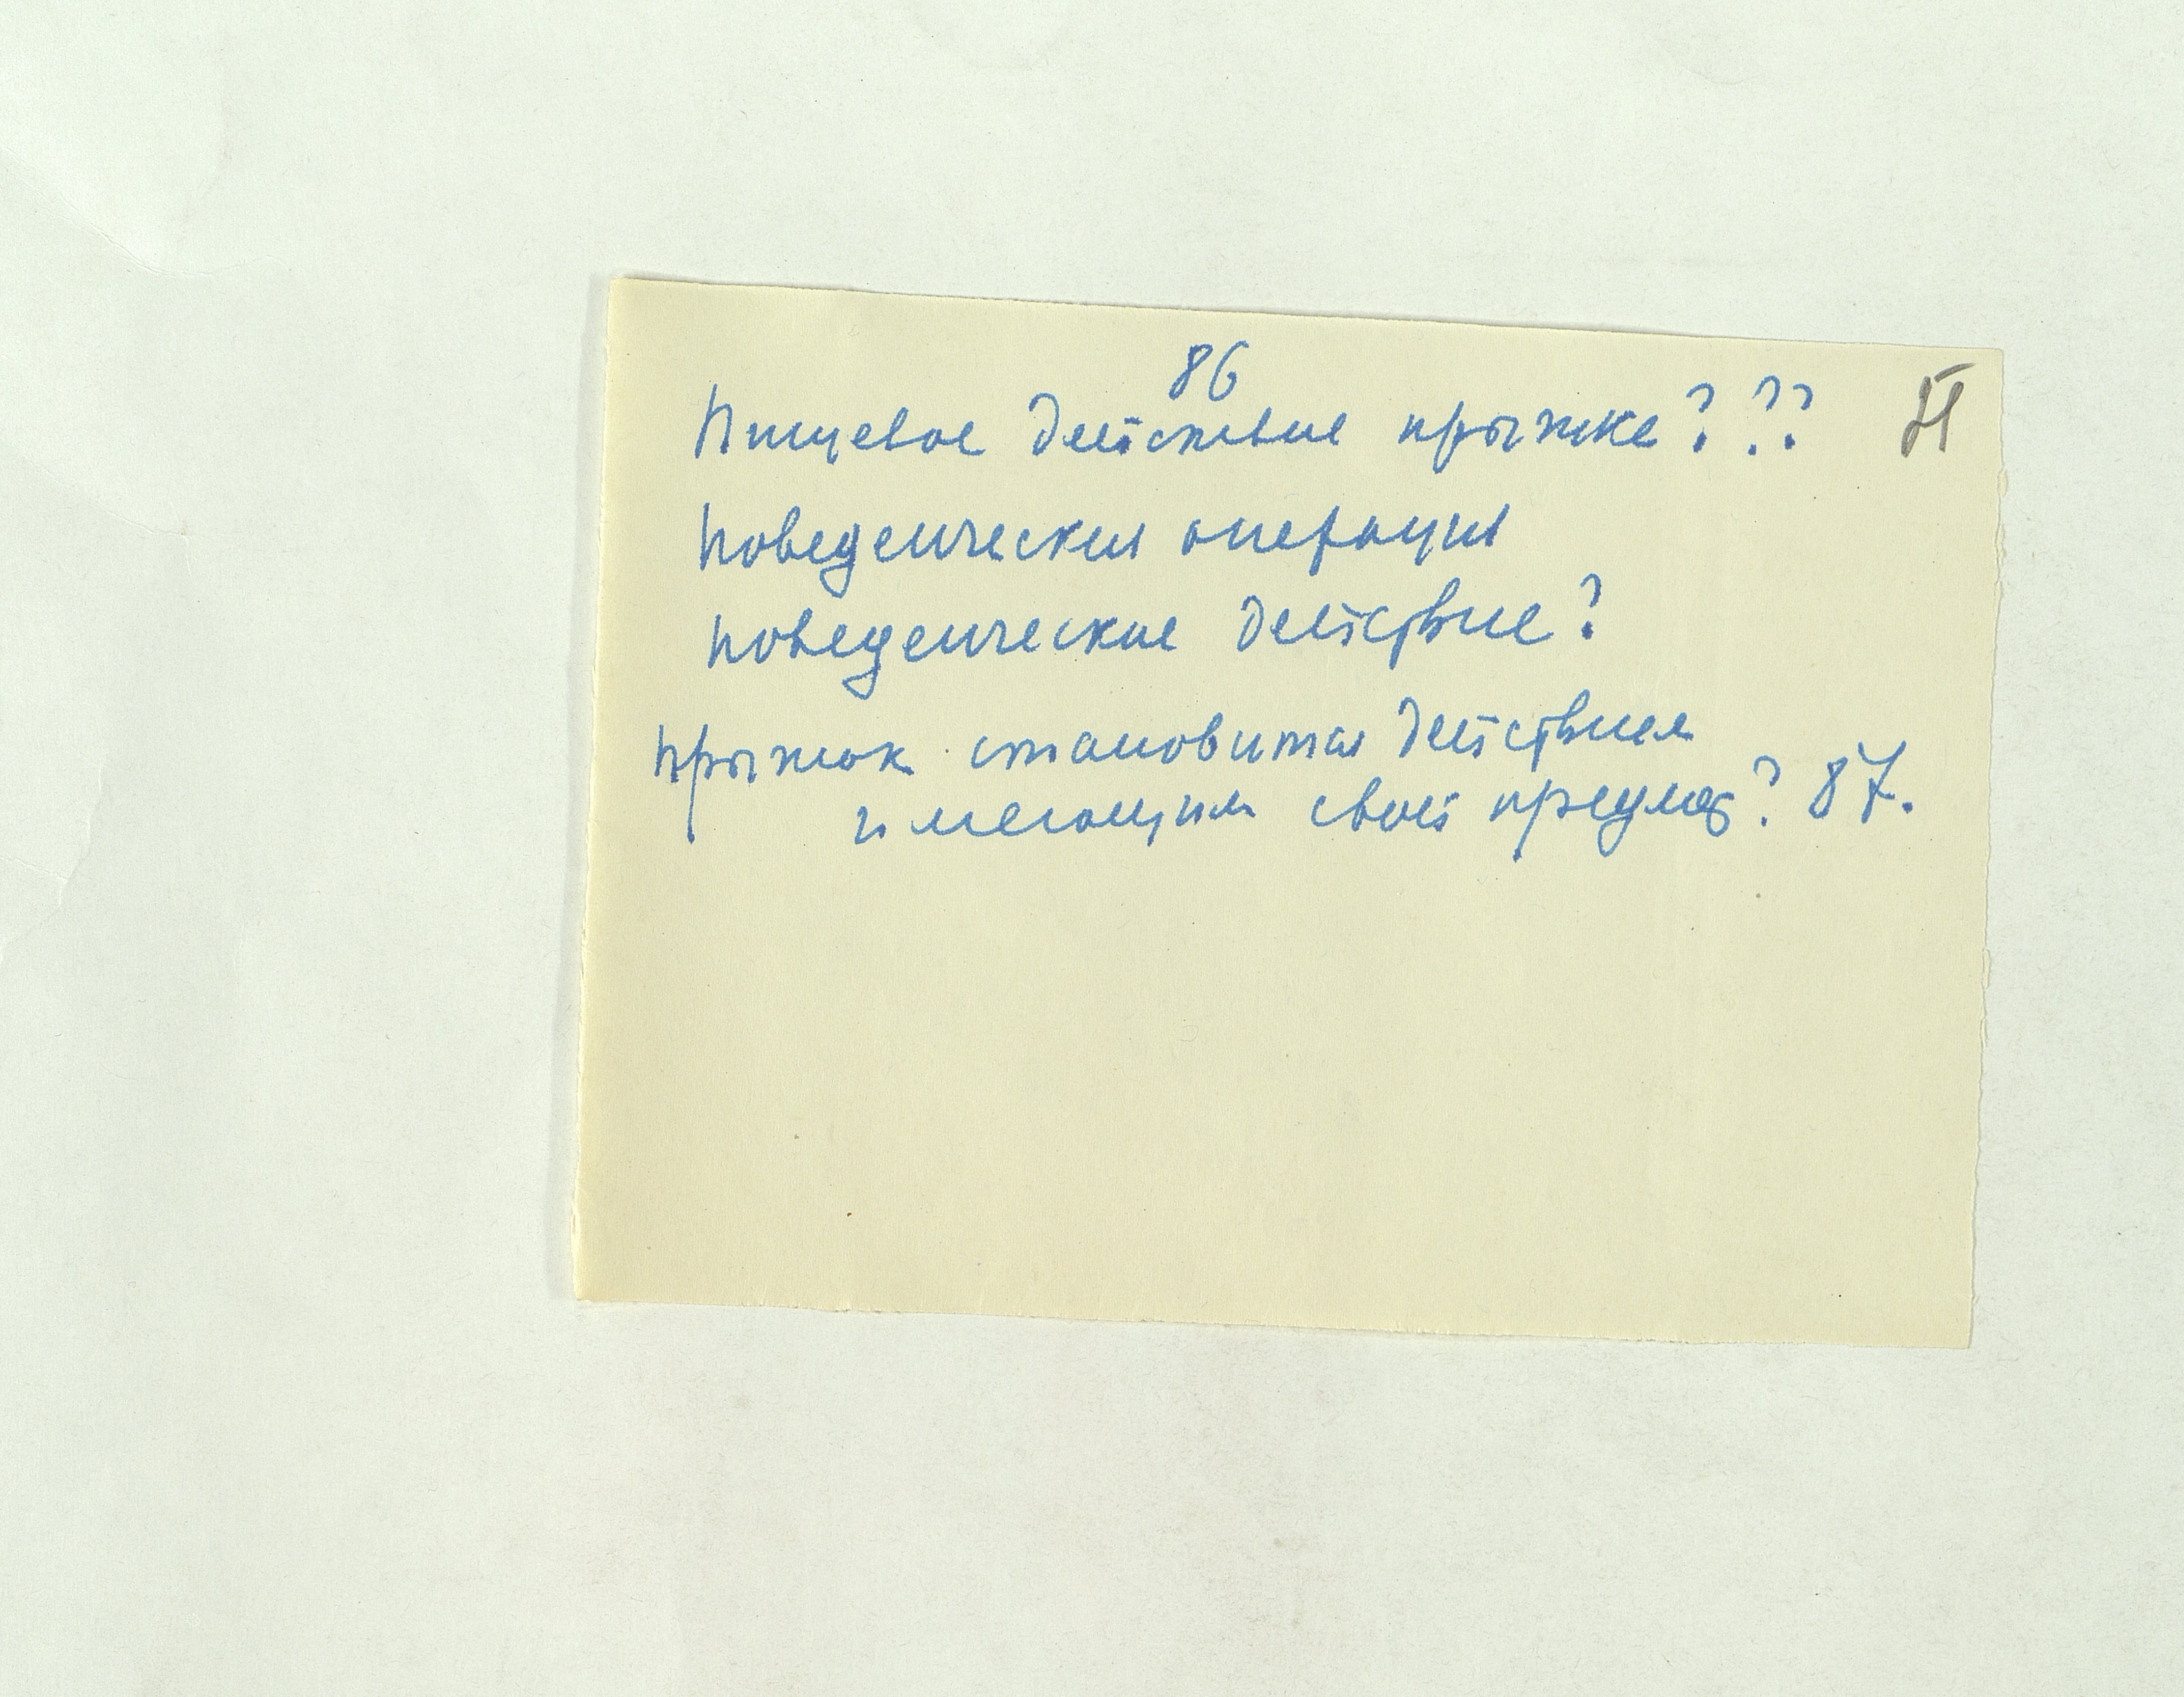 86
Пищевое действие прыжке???
Поведенческая операция
поведенческое действие?
Прыжок становится действием
имеющим свой предмет? 87.